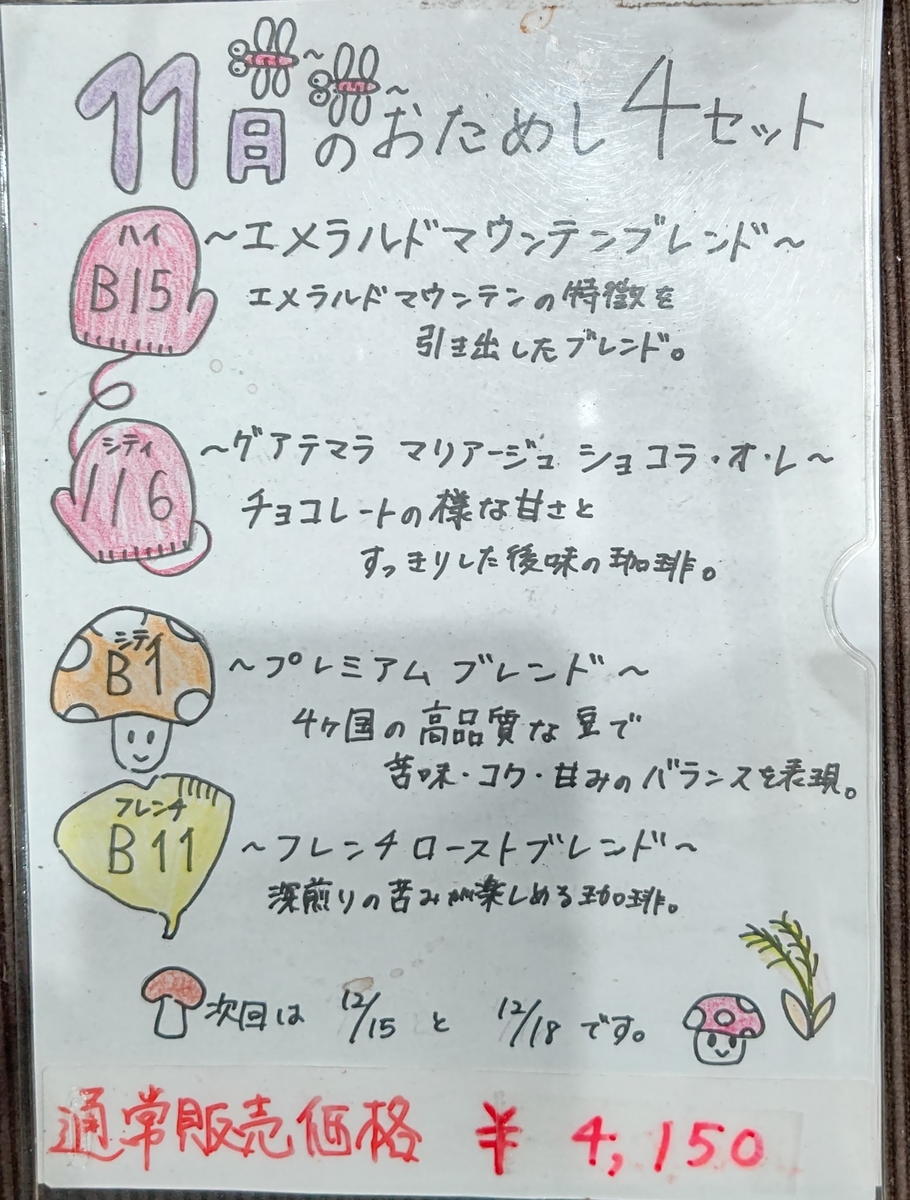 11月のおためし4セット
ハイ
B15
~エメラルドマウンテンブレンド~
エメラルドマウンテンの特徴を
引き出したブレンド。
シティ
116
~グアテマラ マリアージュ ショコラ・オ・レ~
チョコレートの様な甘さと
すっきりした後味の珈琲。
シティ
B1
~プレミアム ブレンド~
4ヶ国の高品質な豆で
苦味・コク・甘みのバランスを表現。
フレンチ
B11
~フレンチローストブレンド~
深煎りの苦みが楽しめる珈琲。
次回は 12/15 と 12/18 です。
通常販売価格 ¥4,150